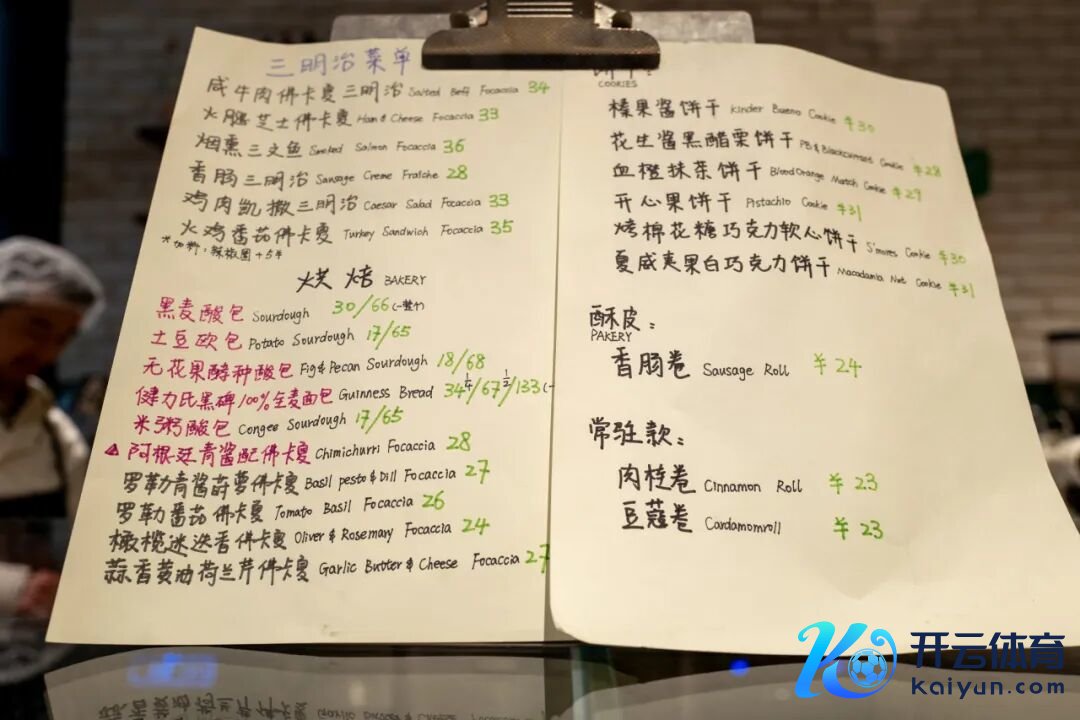 三明治菜单
咸牛肉佛卡夏三明治 Salted Beff Focaccia 34
火腿芝士佛卡夏 Han & Cheese Focaccia 33
烟熏三文鱼 Smoked Salmon Focaccia 36
香肠三明治 Sausage Creme Fraîche 28
鸡肉凯撒三明治 Caesar Salad Focaccia 33
火鸡番茄佛卡夏 Turkey Sandwich Focaccia 35
*加料:辣椒圈+5
烘焙 BAKERY
黑麦酸包 Sourdough 30/66(一整个)
土豆欧包 Potato Sourdough 17/65
无花果酵种酸包 Fig & Pecan Sourdough 18/68
健力氏黑啤100%全麦面包 Guinness Bread 34 1/4 /67 1/2 /133(一
米粥酸包 Congee Sourdough 17/65
阿根廷青酱配佛卡夏 Chimichurri Focaccia 28
罗勒青酱莳萝佛卡夏 Basil pesto & Dill Focaccia 27
罗勒番茄佛卡夏 Tomato Basil Focaccia 26
橄榄迷迭香佛卡夏 Oliver & Rosemary Focaccia 24
蒜香黄油荷兰芹佛卡夏 Garlic Butter & Cheese Focaccia 27
COOKIES
榛果酱饼干 Kinder Bueno Cookie ¥30
花生酱黑醋栗饼干 PB & Blackcurrant Cookie ¥28
血橙抹茶饼干 Blood Orange Match Cookie ¥29
开心果饼干 Pistachio Cookie ¥31
烤棉花糖巧克力软心饼干 S'mores Cookie ¥30
夏威夷果白巧克力饼干 Macadamia Nut Cookie ¥31
酥皮:
PAKERY
香肠卷 Sausage Roll ¥24
常驻款:
肉桂卷 Cinnamon Roll ¥23
豆蔻卷 Cardamomroll ¥23
开云体育
kaiyun.com